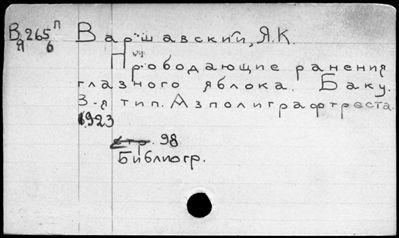 В 265 п
Я 6
Варшавский, Я.К.
Прободающие ранения
глазного яблока. Баку.
3-я тип. Азполиграфтреста.
1923
стр. 98
Библиогр.